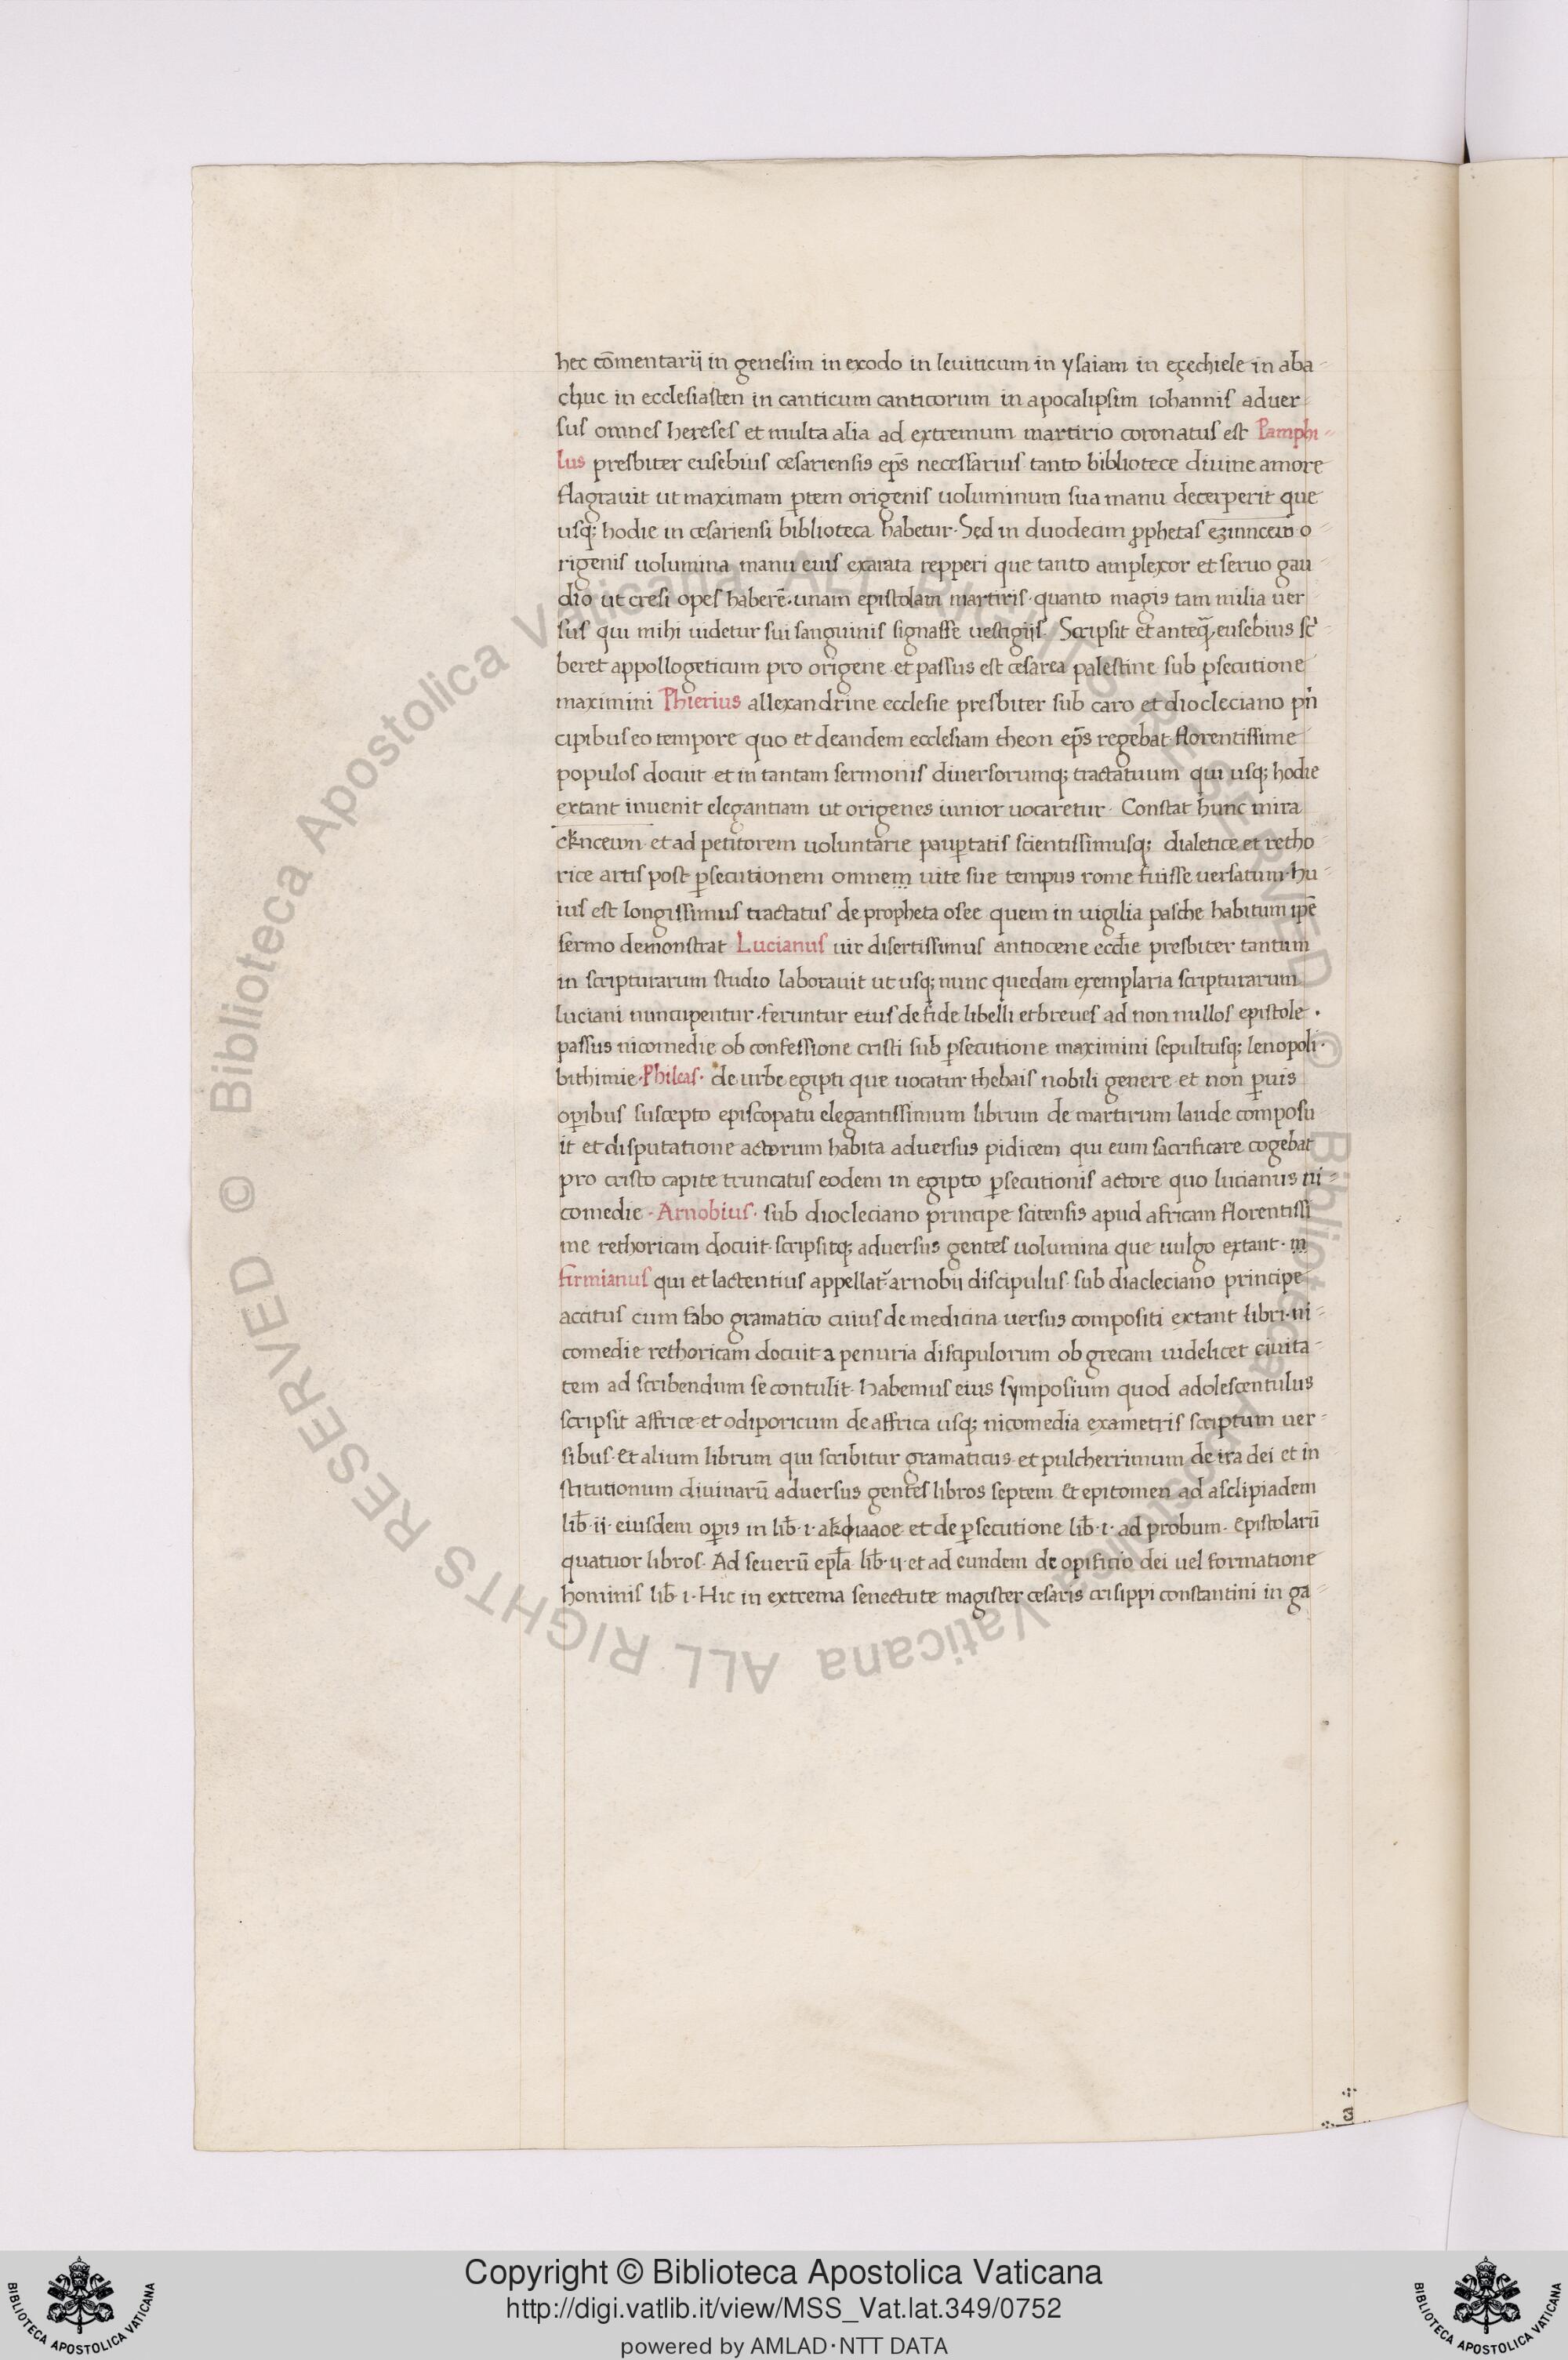 hec cōmentarij in genesim in exodo in leuiticum in ysaiam in ezechiele in aba-
chuc in ecclesiasten in canticum canticorum in apocalipsim iohannis aduer-
sus omnes hereses et multa alia ad extremum martirio coronatus est Pamphi-
lus presbiter eusebius cesariensis ep̄s necessarius tanto bibliotece diuine amore
flagrauit ut maximam ꝑtem origenis uoluminum sua manu decerperit que
usq; hodie in cesariensi biblioteca habetur. Sed in duodecim ꝓphetas o-
rigenis uolumina manu eius exarata repperi que tanto amplexor et seruo gau-
dio ut cresi opes haberē. unam epistolam martiris. quanto magis tam milia uer-
sus qui mihi uidetur sui sanguinis signasse uestigijs. Scripsit et anteq̄ eusebius sc̓
beret appollogeticum pro origene et passus est cesarea palestine sub ꝑsecutione
maximini Phierius allexandrine ecclesie presbiter sub caro et diocleciano pn̓
cipibus eo tempore quo et deandem ecclesiam theon ep̄s regebat florentissime
populos docuit et in tantam sermonis diuersorumq; tractatuum qui usq; hodie
extant inuenit elegantiam ut origenes iunior uocaretur. Constat hunc mira
et ad petitorem uoluntarie pauꝑtatis scientissimusq; dialetice et retho
rice artis post ꝑsecutionem omnem uite sue tempus rome fuisse uersatum. hu-
ius est longissimus tractatus de propheta osee quem in uigilia pasche habitum ipē
sermo demonstrat Lucianus uir disertissimus antiocene eccl̄ie presbiter tantum
in scripturarum studio laborauit ut usq; nunc quedam exemplaria scripturarum
luciani nuncupentur. feruntur eius de fide libelli et breues ad non nullos epistole.
passus nicomedie ob confessione cristi sub ꝑsecutione maximini sepultusq; lenopoli.
bithimie. Phileas. de urbe egipti que uocatur thebais nobili genere et non ꝑuis
oꝑibus suscepto episcopatu elegantissimum librum de martirum laude composu
it et disputatione actorum habita aduersus pidicem qui eum sacrificare cogebat
pro cristo capite truncatus eodem in egipto ꝑsecutionis actore quo lucianus ni-
comedie. Arnobius. sub diocleciano principe scitensis apud africam florentissi
me rethoricam docuit. scripsitq; aduersus gentes uolumina que uulgo extant. in
firmianus qui et lactentius appellat̄ arnobii discipulus. sub diacleciano principe
accitus cum fabo gramatico cuius de medicina uersus compositi extant libri. ni-
comedie rethoricam docuit a penuria discipulorum ob grecam uidelicet ciuita-
tem ad scribendum se contulit. Habemus eius symposium quod adolescentulus
scripsit affrice et odiporicum de affrica usq; nicomedia exametris scriptum uer-
sibus. Et alium librum qui scribitur gramaticus et pulcherrimum de ira dei et in
stitutionum diuinarū aduersus gentes libros septem. Et epitomen ad asclipiadem
lib̄. ii. eiusdem oꝑis in lib̄. i. et de ꝑsecutione lib̄. i. ad probum. Epistolarū
quatuor libros. Ad seuerū epl̄a lib̄. ii. et ad eundem de opificio dei uel formatione
hominis lib̄ i. Hic in extrema senectute magister cesaris crisippi constantini in ga-
© Biblioteca Apostolica Vaticana ALL RIGHTS RESERVED © Biblioteca Apostolica Vaticana ALL RIGHTS RESERVED
Copyright © Biblioteca Apostolica Vaticana
http://digi.vatlib.it/view/MSS_Vat.lat.349/0752
powered by AMLAD·NTT DATA
BIBLIOTECA APOSTOLICA VATICANA
BIBLIOTECA APOSTOLICA VATICANA